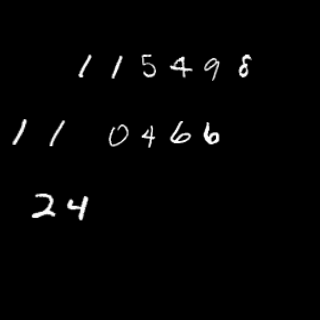 115498
11 0466
24